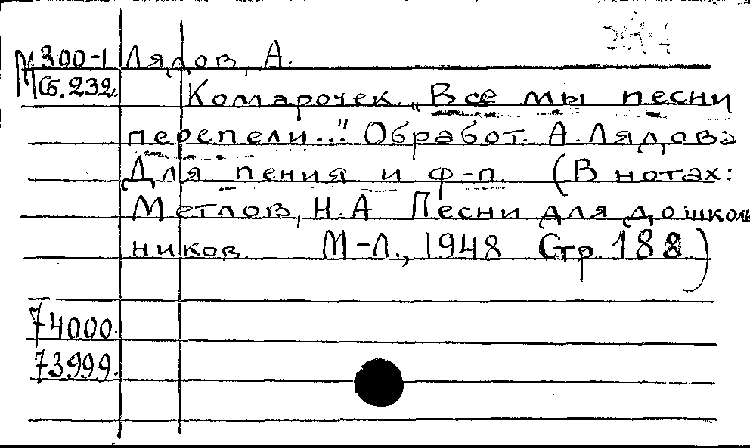 М 300-1 Лядов, А.
Сб. 232.
Комарочек. „Все мы песни
перепели..." Обработ. А. Лядова
Для пения и ф-п. (В нотах:
Метлов, Н.А Песни для дошколь
ников. М-Л., 1948 Стр. 188)
74000.
73999.